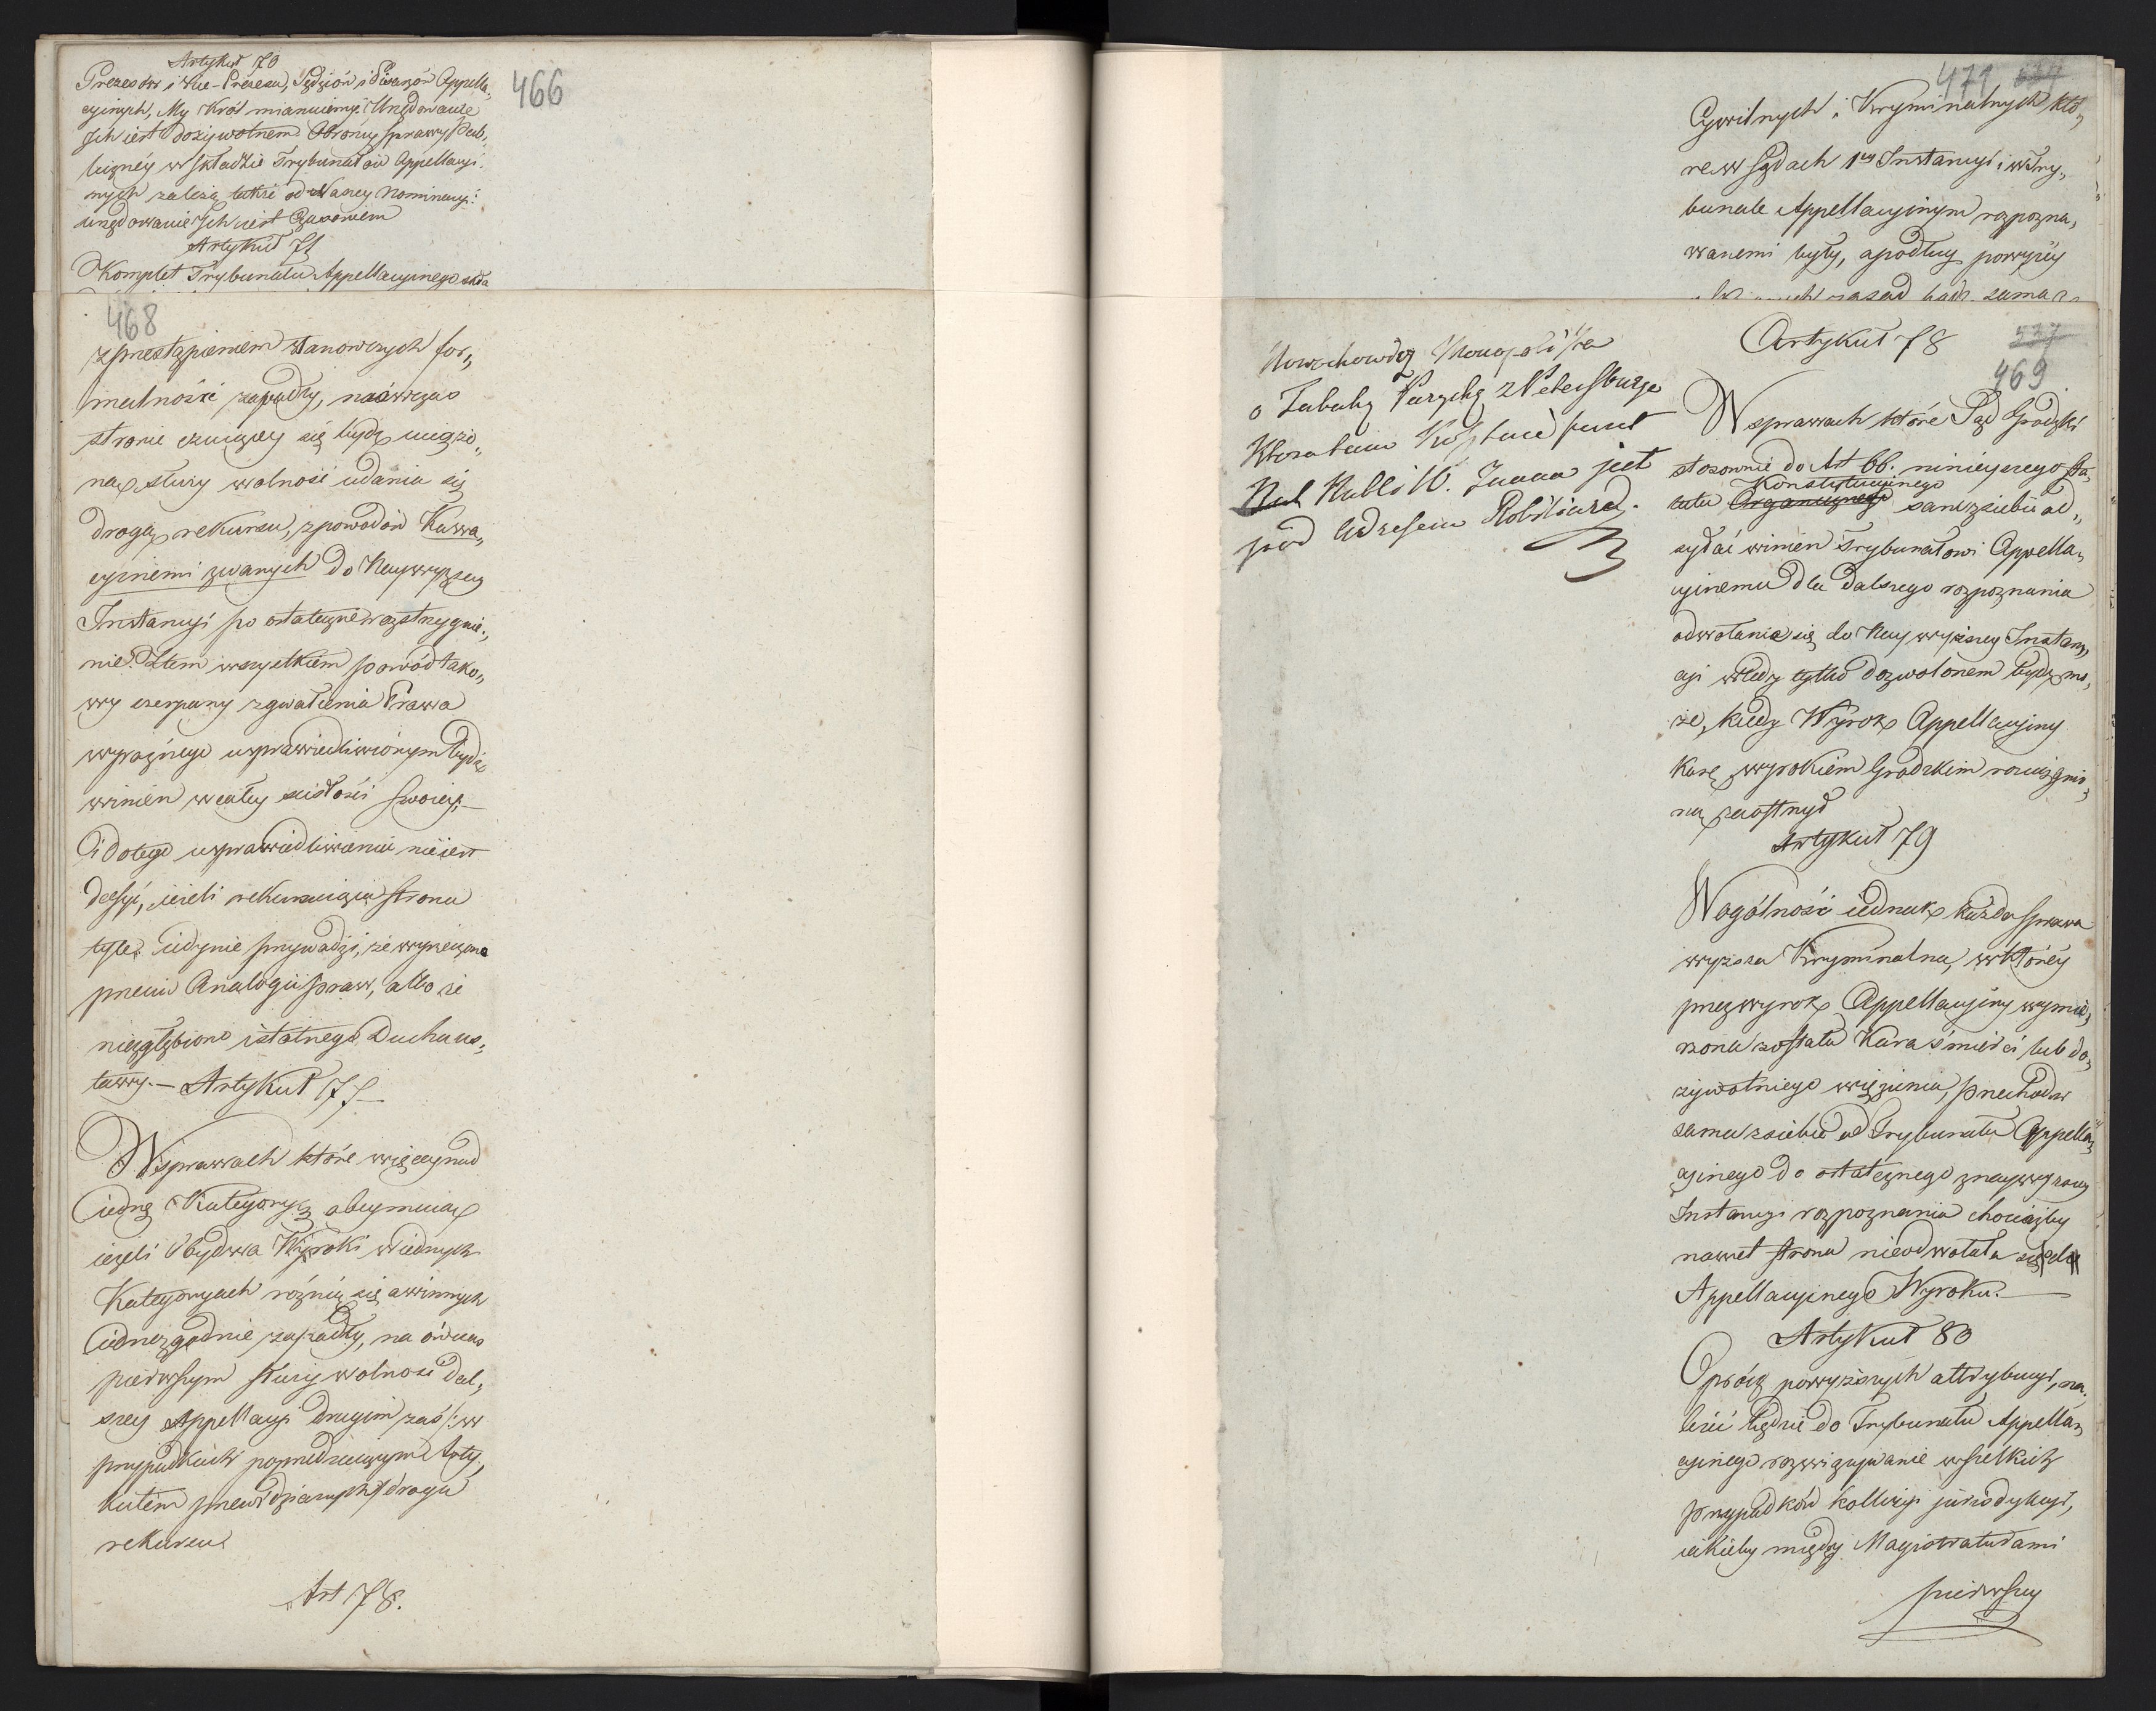 Artykuł 70
Prezesów i Vice-Prezesa, Sędziów i Pisarzów Appella„
cyinych, My Król mianuiemy: Urzędowanie
Ich iest dożywotnem. Obrońcy sprawy Pub„
liczney w składzie Trybunałów Appellacyi„
nych zależą także od Naszey Nominacyi:
urzędowanie Ich iest Czasowem
Artykuł 71
Komplet Trybunału Appellacyinego skła
466
468
z przestąpieniem stanowczych for„
malności zapadły, naówczas
stronie czuiącey się bydź uciążo„
ną, służy wolność udania się
drogą rekursu, z powodów Kassa„
cyinemi zwanych do Naywyższey
Instancyi po ostateczne rozstrzygnie„
nie. Ztem wszystkiem powód tako„
wy czerpany z gwałcenia Prawa
wyraźnego usprawiedliwionym bydź
winien w całey ścisłości swoiey.—
I do tego usprawiedliwienia nie iest
dosyć, ieżeli rekursuiąca strona
tyle iedynie przywodzi, że wyrzeczono
przeciw Analogii praw, albo że
niezgłębiono istotnego Ducha us„
tawy.— Artykuł 77—
W sprawach które więcey nad
iednę Kategoryą obeymuią
ieżeli Obydwa Wyroki w iednych
Kategoryach różnią się a w innych
iednozgodnie zapadły, na ówczas
pierwszym służy wolność dal„
szey Appellacyi drugim zaś /: w
przypadkach poprzedzaiącym Arty„
kułem przewidzianych :/ droga
rekursu
Art 78.
471
Cywilnych i Kryminalnych któ„
re w sądach 1ey Instancyi i w Try„
bunale Appellacyinym rozpozna„
wanemi były, a podług powyżey
zasad bądź sama
o Tabakę Paryską z Petersburga
Która tam Kosztuie funt
pod Adresem
537
469
Artykuł 78
W sprawach które Sąd Grodzki
stosownie do Art 66. ninieyszego Sta„
Konstytucyinego
tutu Organicznego sam z siebie od„
syłać winien Trybunałowi Appella„
cyinemu dla dalszego rozpoznania
odwołanie się do Naywyższey Instan„
cyi wtedy tylko dozwolonem bydź mo„
że, kiedy Wyrok Appellacyiny
karę wyrokiem Grodzkim rozciągnio„
ną zaostrzył
Artykuł 79
W ogólności iednak każda sprawa
wyższa Kryminalna, w którey
przez wyrok Appellacyiny wymie„
rzona została Kara śmierci lub do„
żywotniego więzienia, przechodzi
sama z siebie od Trybunału Appella„
cyinego do ostatecznego z naywyższey
Instancyi rozpoznania chociażby
nawet strona nieodwołała się od
Appellacyinego Wyroku.—
Artykuł 80
Oprócz powyższych attrybucyi, na„
leżeć będzie do Trybunału Appella„
cyinego rozwiązywanie wszelkich
przypadków kollizyi juriodykcyi,
iakieby między Magistraturami
pierwszey